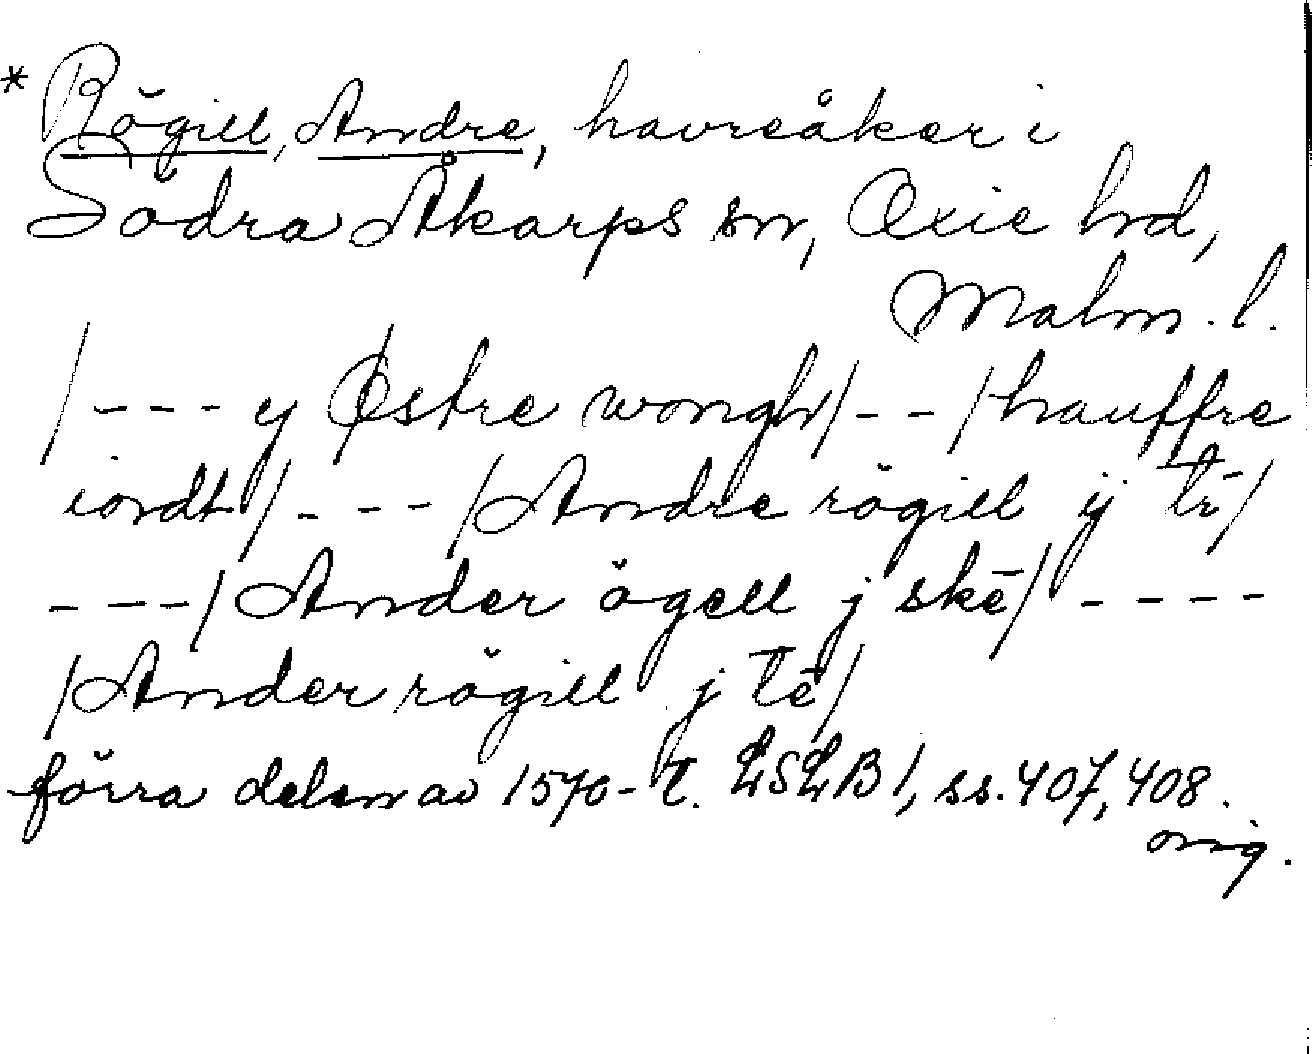 * Rögill, Andre, havreåker i
Södra Åkarps sn, Oxie hd,
Malm. l.
/--- y Østre wongh/--/hauffre
iordt/---/Andre rögill ij tr̄/
---/Ander ögell j skē/----
/Ander rögill j tē/
förra delen av 1570-t. LSLB 1, ss. 407, 408.
orig.